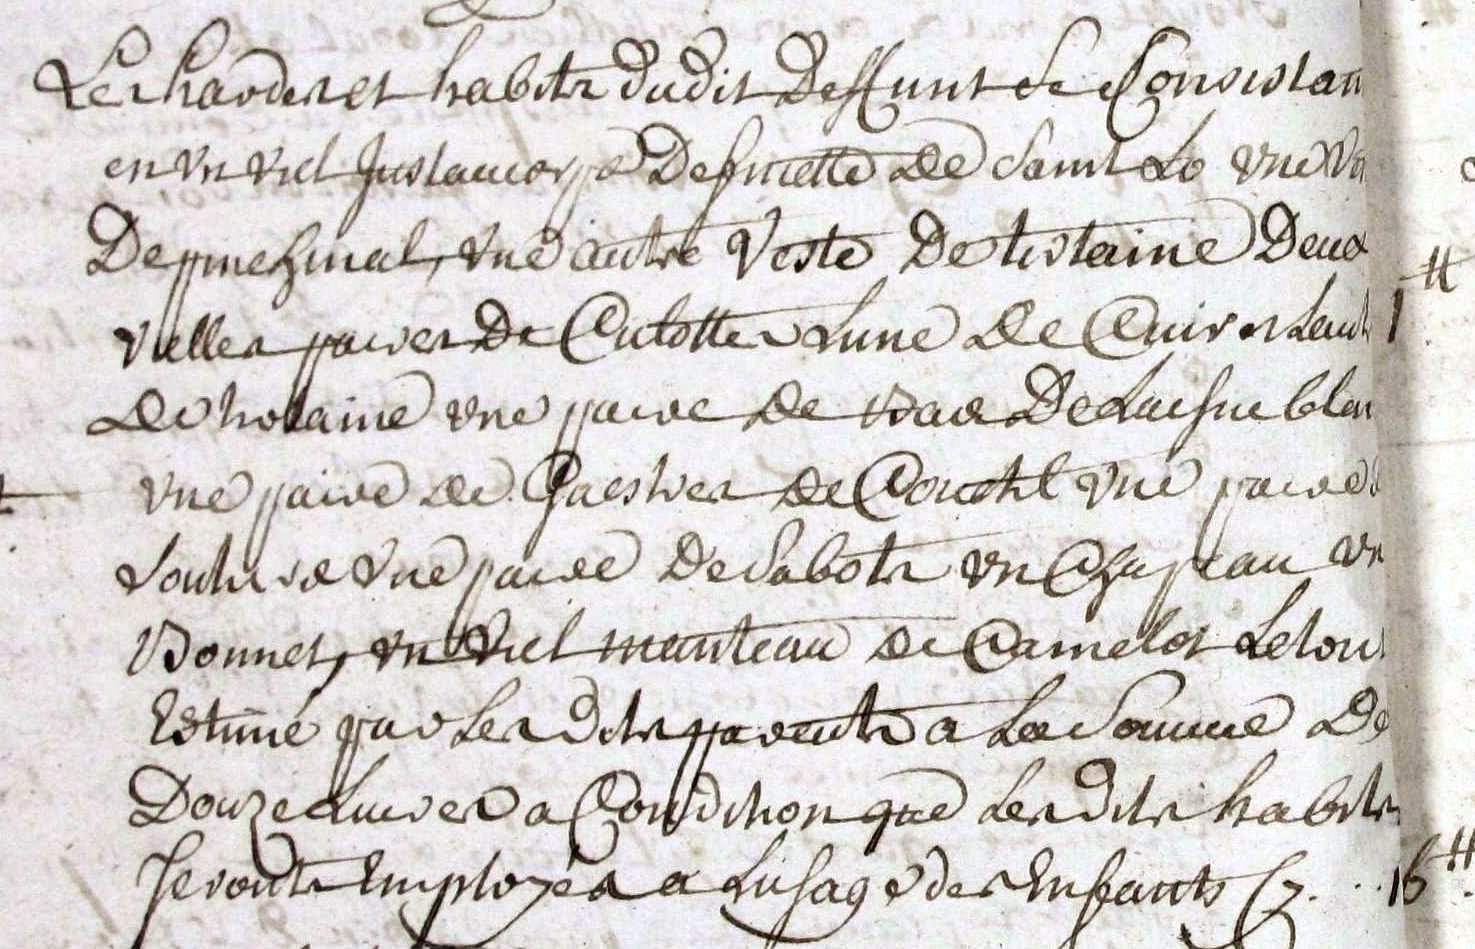 Les hardes et habits dudit deffunt se Consistan
en un viel Justaucorps de frette de saint Lo une Ve
De pinchinat, une autre Veste de tirtaine Deux
vielles paires de Culottes Lune de Cuir et Laut
de tirtaine une paire de bas de Laisne blan
une paire de Guestres de Coutil une paire d
soulier une paire de sabots un Chapeau un
Bonnet, un viel manteau de Camelot Le tout
Estimé par Les dits parents a La Somme de
Douze Livres a Condition que Les dits habits
seronts Employés a Lusage des Enfants Cy. .. 16 ₶
1 ₶